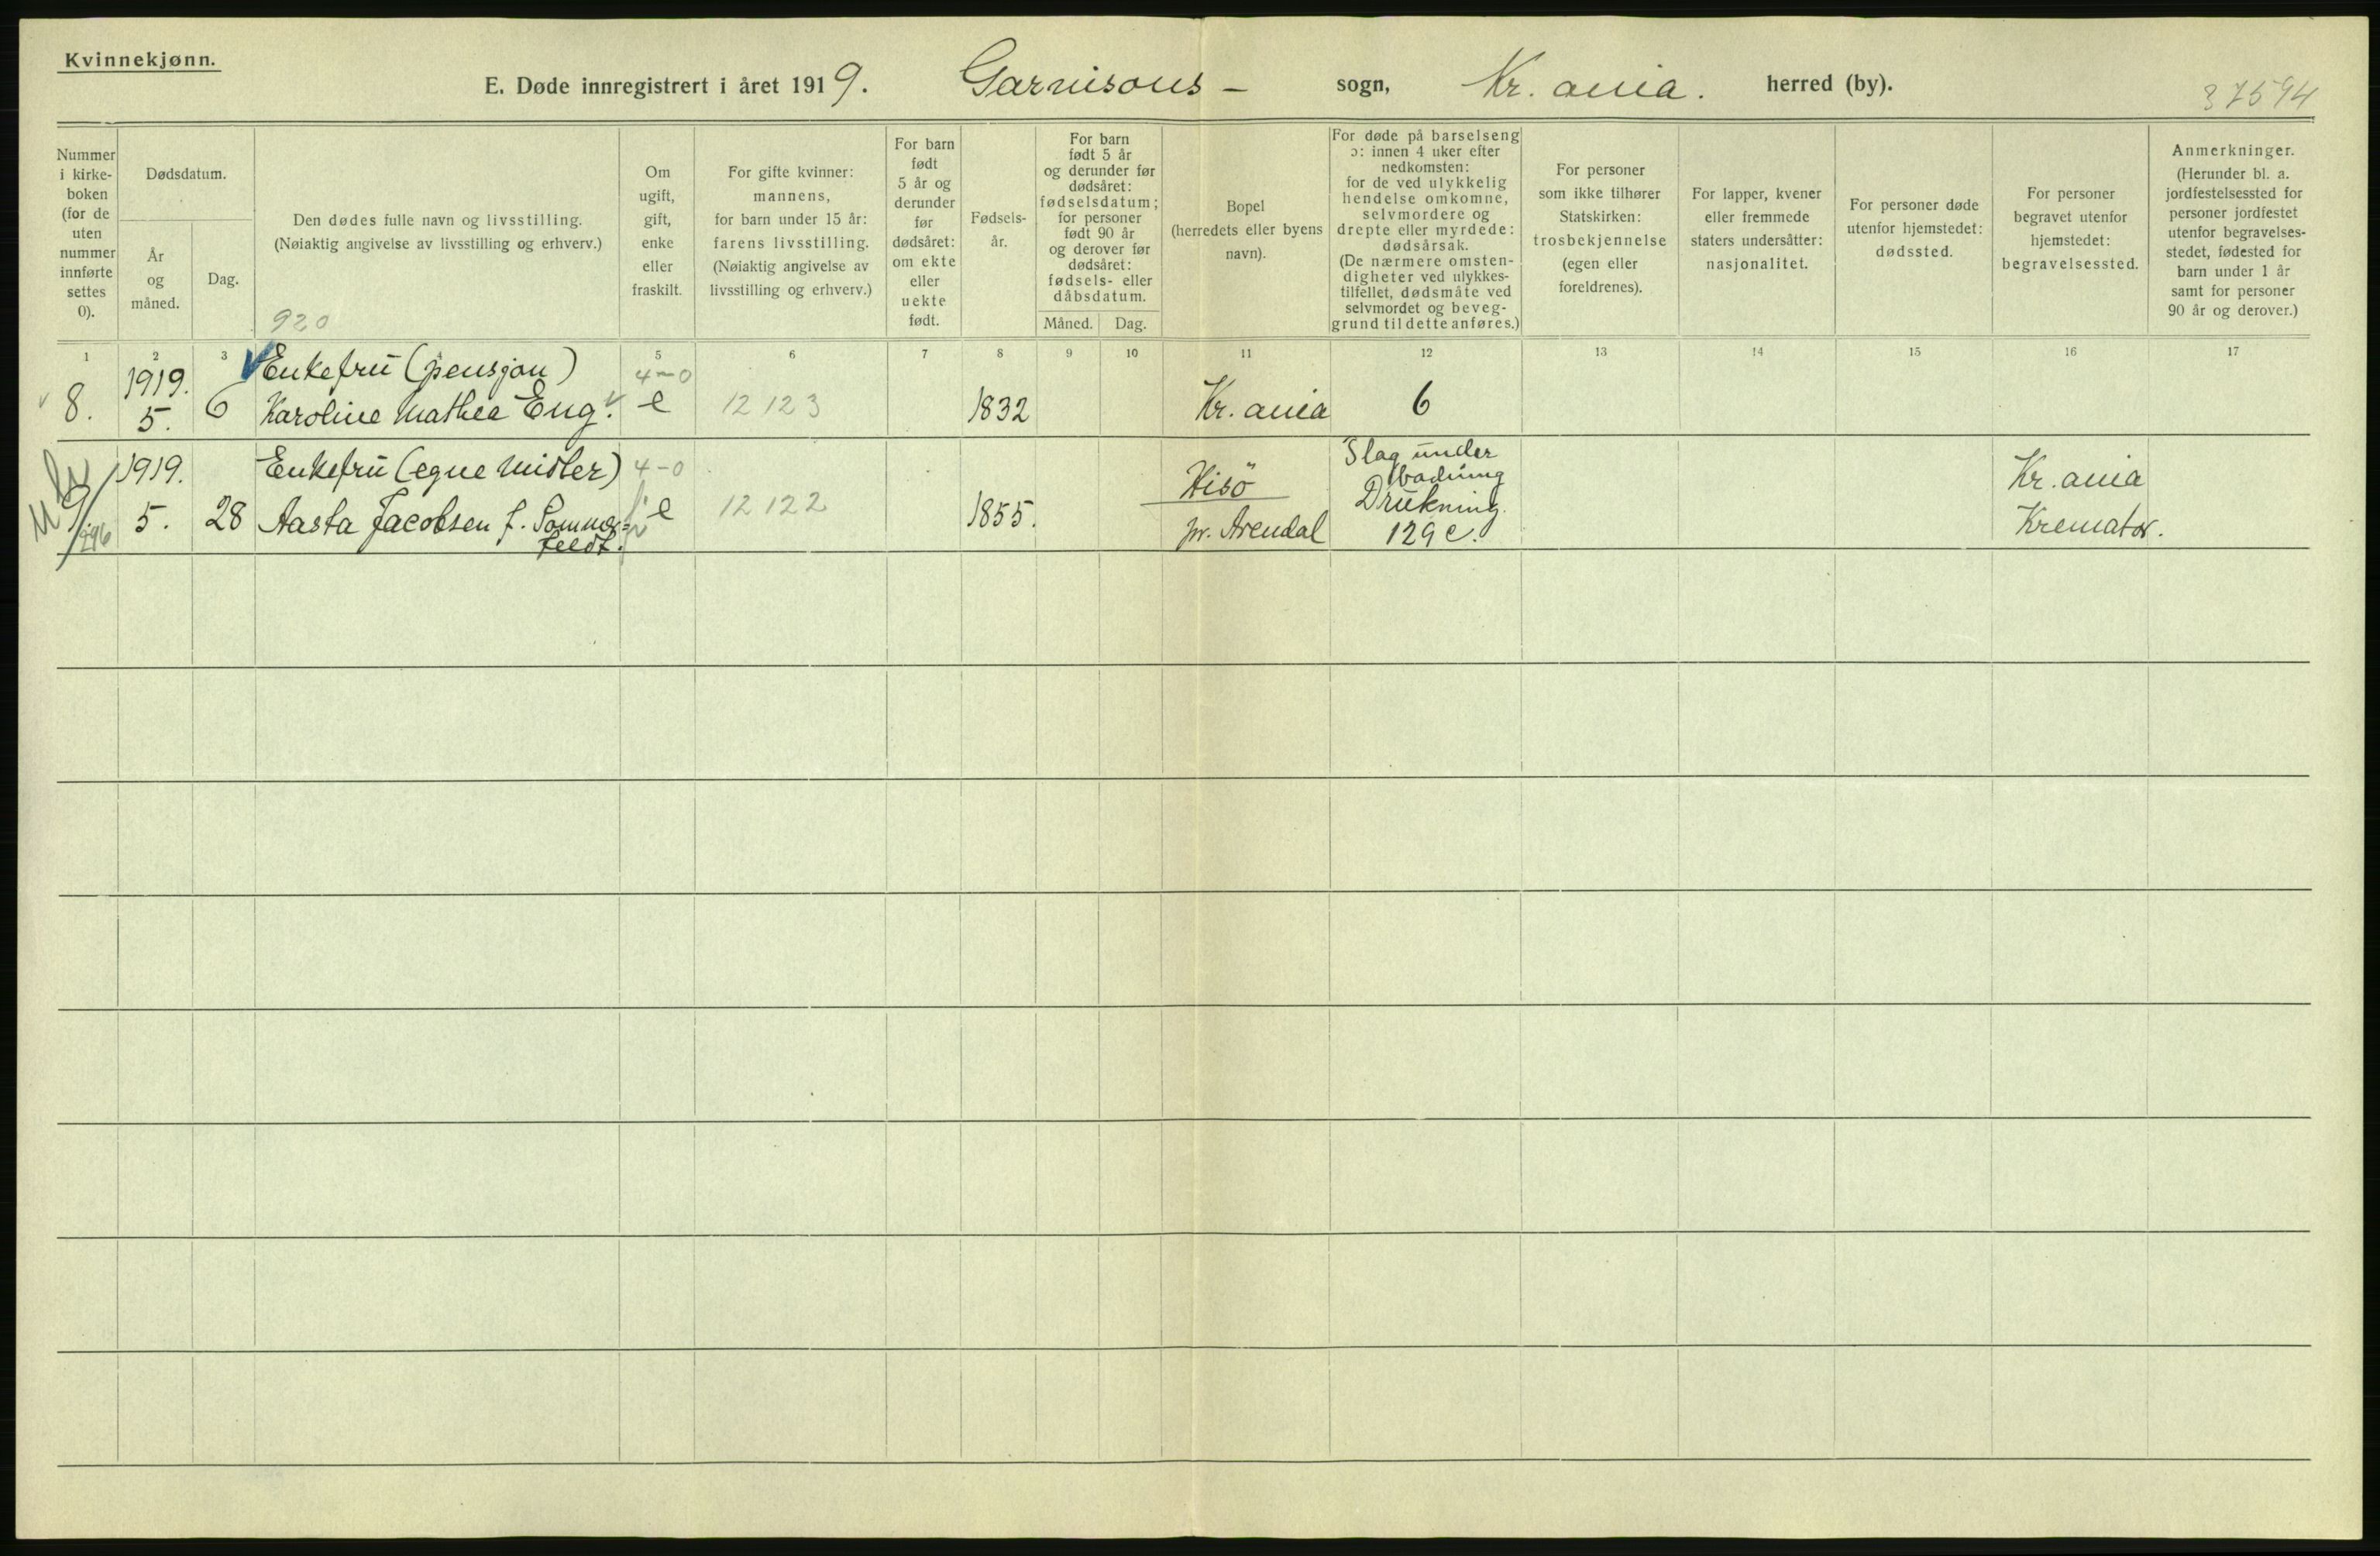 Kvinnekjønn.
E. Døde innregistrert i året 1919. Garnisons- sogn, Kr. ania. herred (by).
37594
Nummer
i kirke-
boken
(for de
uten
nummer
innførte
settes
0).
Dødsdatum.
År
og
måned.
Dag.
Den dødes fulle navn og livsstilling.
(Nøiaktig angivelse av livsstilling og erhverv.)
920
Om
ugift,
gift,
enke
eller
fraskilt.
For gifte kvinner:
mannens,
for barn under 15 år:
farens livsstilling.
(Nøiaktig angivelse av
livsstilling og erhverv.)
For barn
født
5 år og
derunder
før
dødsåret:
om ekte
eller
uekte
født.
Fødsels-
år.
For barn
født 5 år
og derunder før
dødsåret:
fødselsdatum;
for personer
født 90 år
og derover før
dødsåret:
fødsels- eller
dåbsdatum.
Måned. Dag.
Bopel
(herredets eller byens
navn).
For døde på barselseng
ɔ: innen 4 uker efter
nedkomsten:
for de ved ulykkelig
hendelse omkomne,
selvmordere og
drepte eller myrdede:
dødsårsak.
(De nærmere omsten-
digheter ved ulykkes-
tilfellet, dødsmåte ved
selvmordet og beveg-
grund til dette anføres.)
For personer
som ikke tilhører
Statskirken:
trosbekjennelse
(egen eller
foreldrenes).
For lapper, kvener
eller fremmede
staters undersåtter:
nasjonalitet.
For personer døde
utenfor hjemstedet:
dødssted.
For personer
begravet utenfor
hjemstedet:
begravelsessted.
Anmerkninger.
(Herunder bl. a.
jordfestelsessted for
personer jordfestet
utenfor begravelses-
stedet, fødested for
barn under 1 år
samt for personer
90 år og derover.)
1 2 3 5 6 7 8 9 10 11 12 13 14 15 16 17
1919. Enkefru (pensjon) 4-0
8. 5. 6 Karoline Mathea Eng. e 12 123 1832 Kr. ania 6
1919. Enkefru (egne midler) 4-0 Hisö Slag under
badning Kr. ania
9/296 5. 28 Aasta Jacobsen f. Sommer= e 12 122 1855. pr. Arendal Drukning.
feldt. 129 e. Kremator.